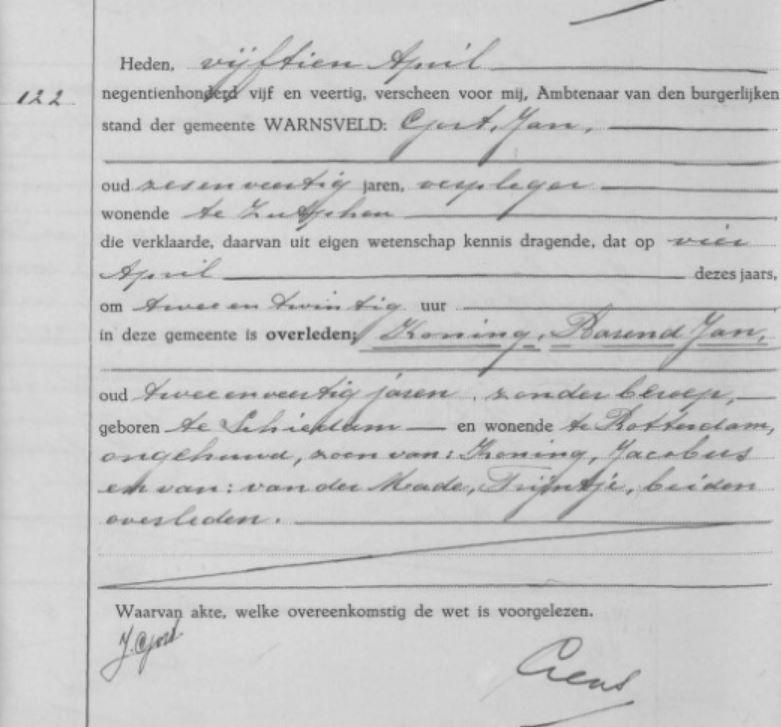 Heden, vijftien April
122
negentienhonderd vijf en veertig, verscheen voor mij, Ambtenaar van den burgerlijken
stand der gemeente WARNSVELD: Gort, Jan,
oud zesenveertig jaren, verpleger
wonende te Zutphen
die verklaarde, daarvan uit eigen wetenschap kennis dragende, dat op vier
April dezes jaars,
om twee en twintig uur
in deze gemeente is overleden: Koning, Barend Jan,
oud tweeenveertig jaren, zonder beroep,
geboren te Schiedam en wonende te Rotterdam,
ongehuwd, zoon van: Koning, Jacobus
en van: van der Made, Trijntje, beiden
overleden.
Waarvan akte, welke overeenkomstig de wet is voorgelezen.
J. Gort